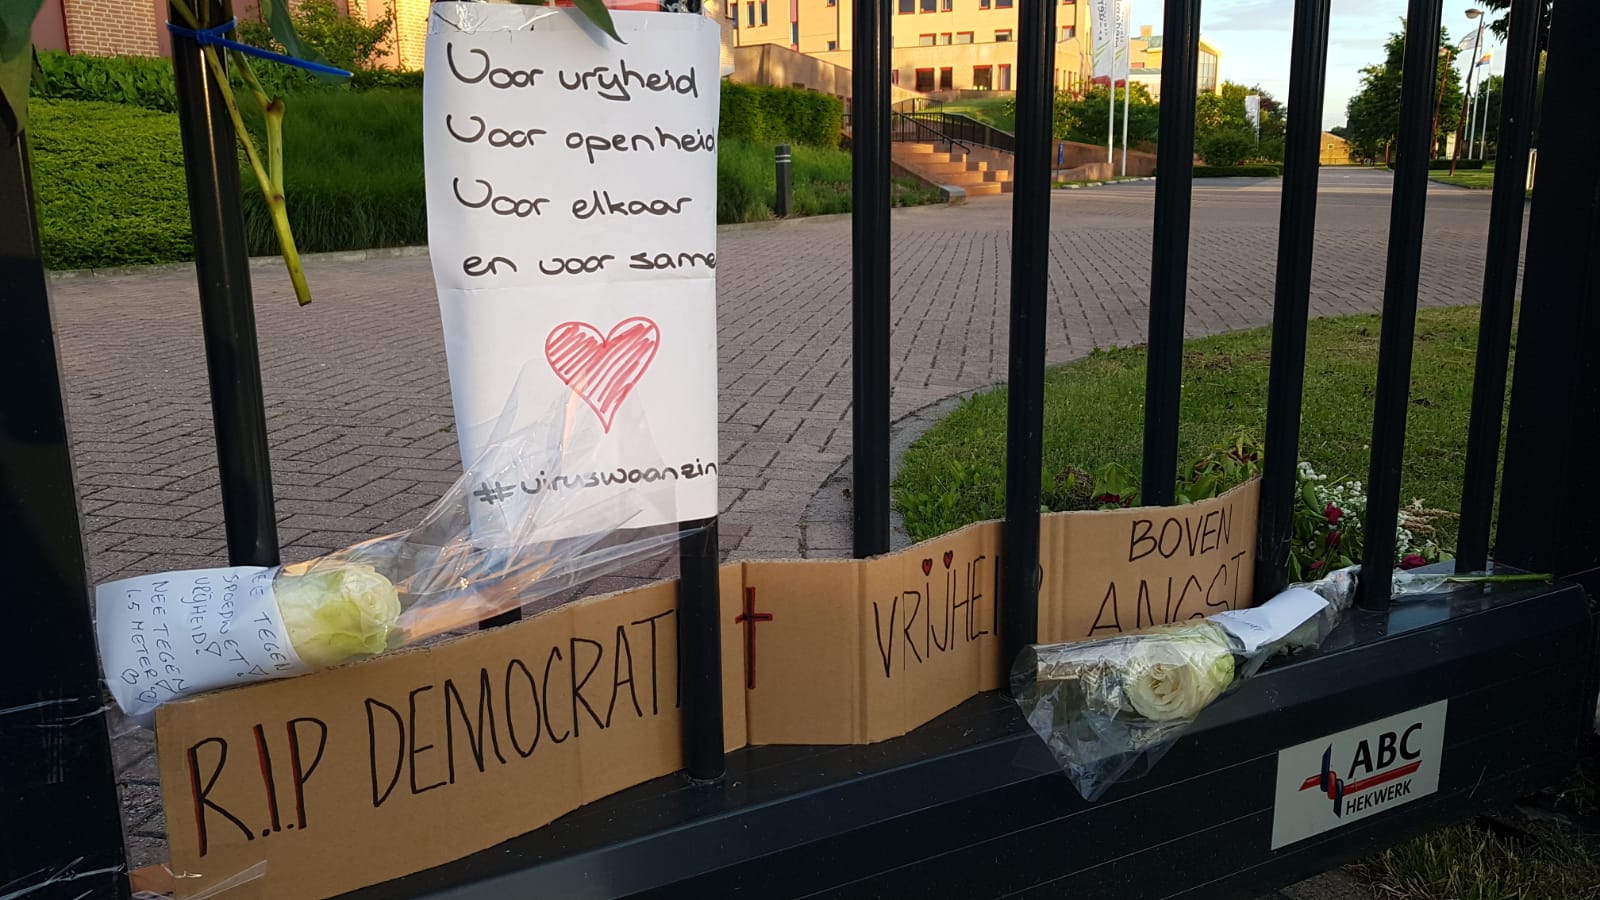 Voor vrijheid
Voor openheid
Voor elkaar
en voor same
#viruswaanzin
NEE TEGEN
SPOEDWET!
VRIJHEID!
NEE TEGEN
1.5 METER
R.I.P DEMOCRATI
VRIJHEID
BOVEN
ANGST
ABC
HEKWERK